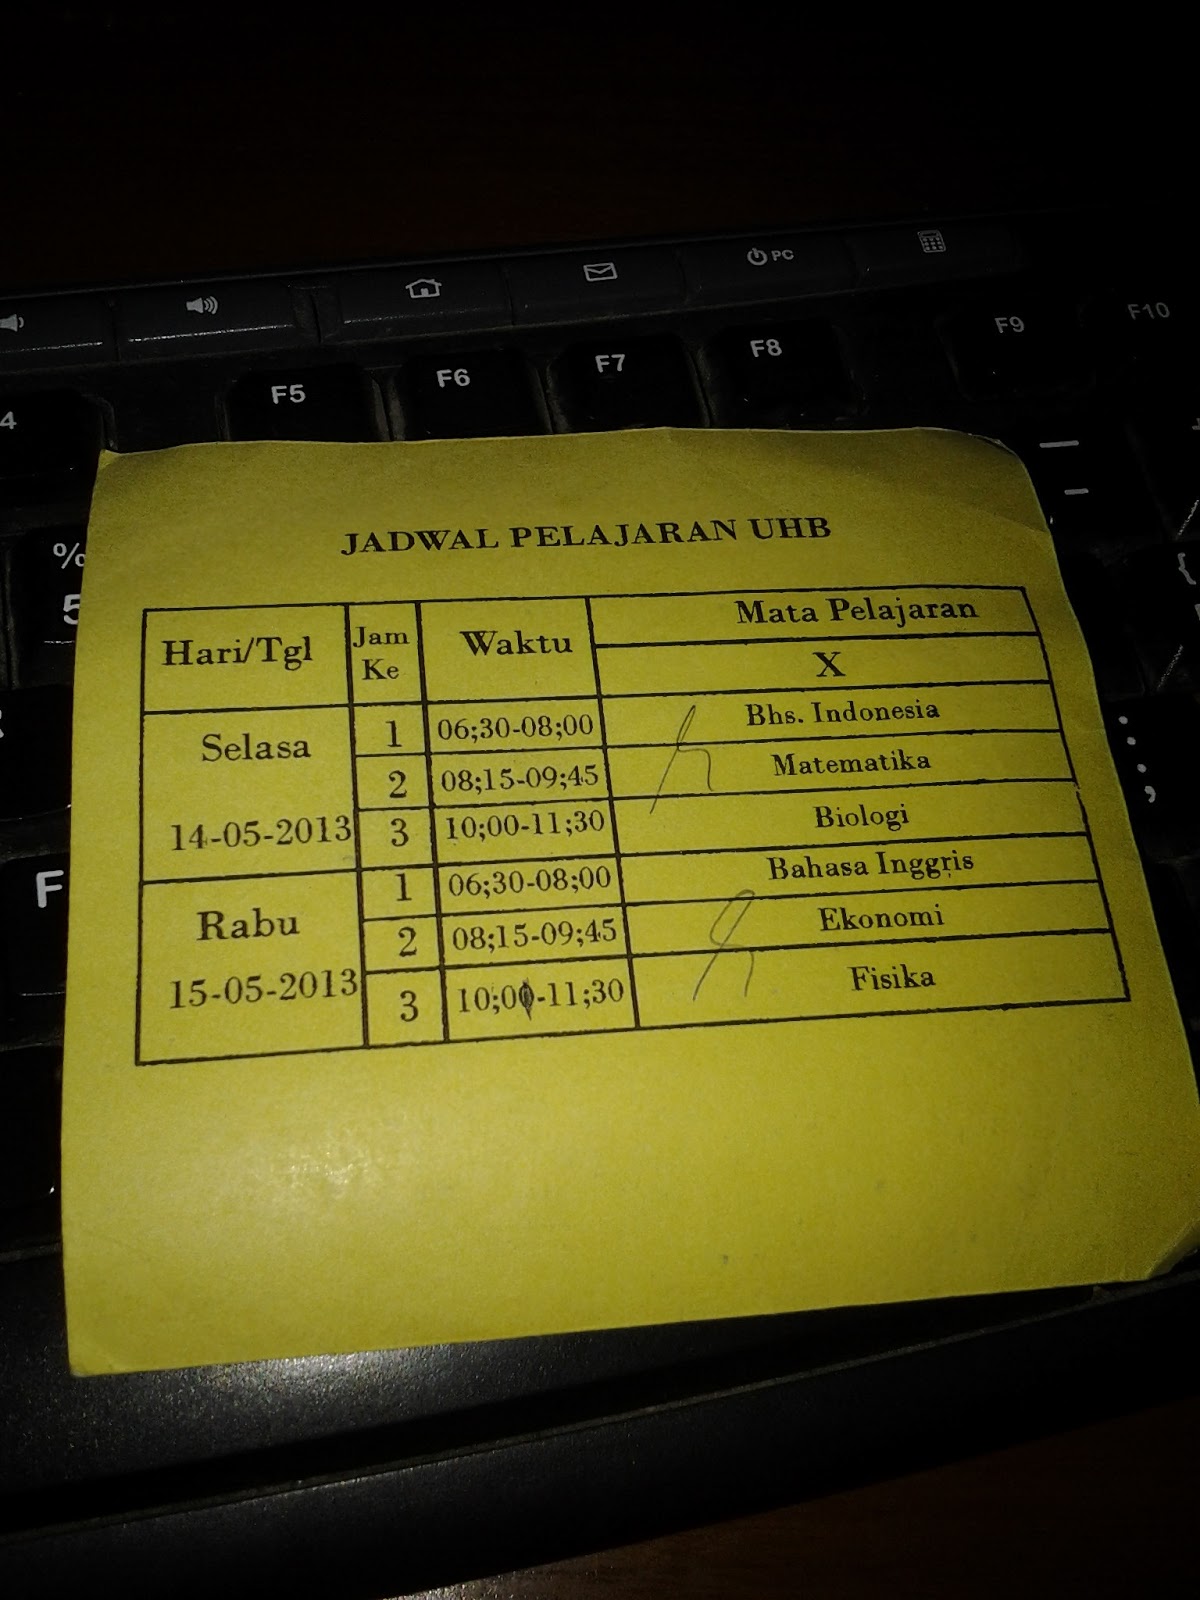 PC
F9
F10
F8
F7
F6
F5
4
%
5
F
JADWAL PELAJARAN UHB
Hari/Tgl Jam Ke Waktu Mata Pelajaran
X
Selasa 1 06;30-08;00 Bhs. Indonesia
2 08;15-09;45 Matematika
14-05-2013 3 10;00-11;30 Biologi
Rabu 1 06;30-08;00 Bahasa Inggris
2 08;15-09;45 Ekonomi
15-05-2013 3 10;00-11;30 Fisika